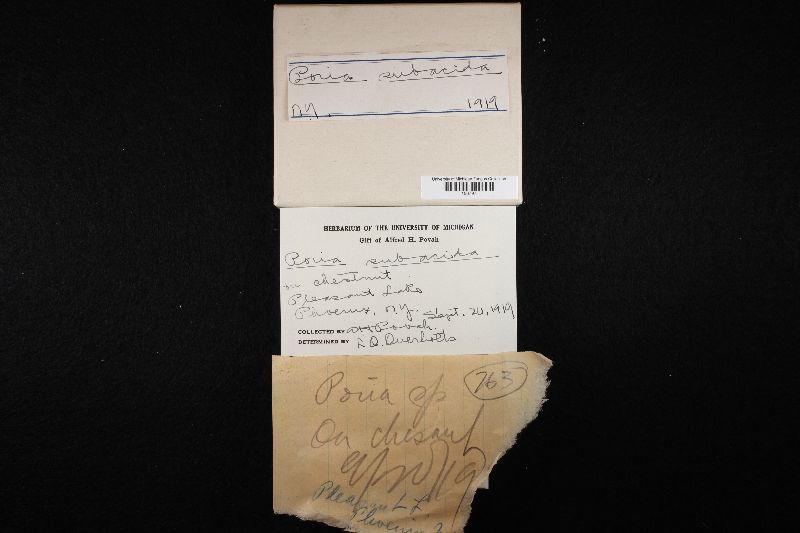 Poria subacida
N.Y. 1919
University of Michigan Fungus Collection
HERBARIUM OF THE UNIVERSITY OF MICHIGAN
Gift of Alfred H. Povah
Poria subacida
on chestnut
Pleasant Lake
Phoenix, N.Y. Sept. 20, 1919
COLLECTED BY AH Povah.
DETERMINED BY L.O. Overholts
763
Poria sp
On chesnut
9/20/19
Pleasant L
Phoenix